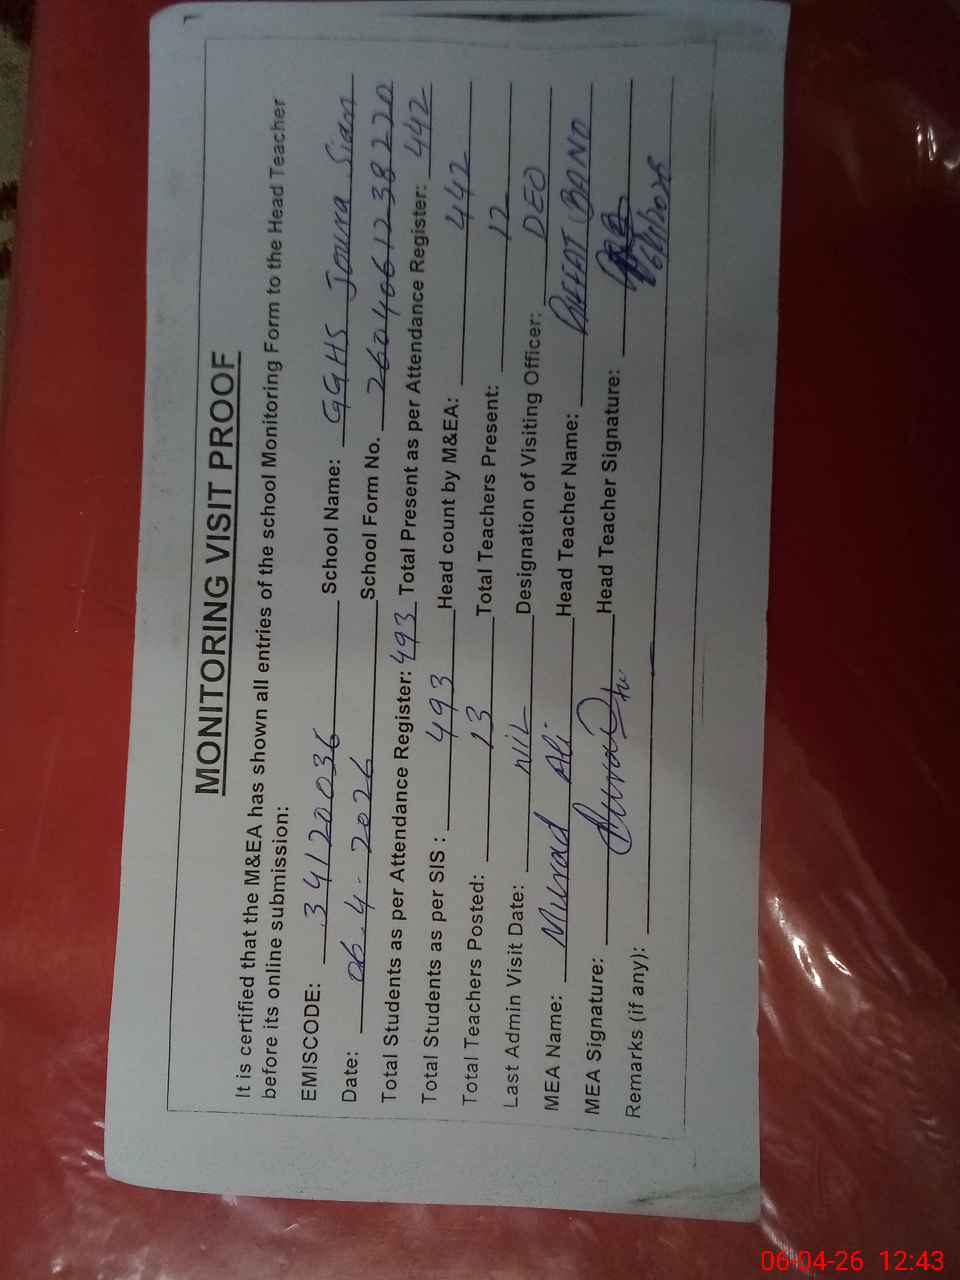 MONITORING VISIT PROOF
It is certified that the M&EA has shown all entries of the school Monitoring Form to the Head Teacher
before its online submission:
EMISCODE: 34120036 School Name: GGHS Joura Sian
Date: 06.4.2026 School Form No. 2604061238220
Total Students as per Attendance Register: 493 Total Present as per Attendance Register: 442
Total Students as per SIS : 493 Head count by M&EA: 442
Total Teachers Posted: 13 Total Teachers Present: 12
Last Admin Visit Date: NIL Designation of Visiting Officer: DEO
MEA Name: Murad Ali. Head Teacher Name: BANO
MEA Signature: Head Teacher Signature:
Remarks (if any):
06-04-26 12:43